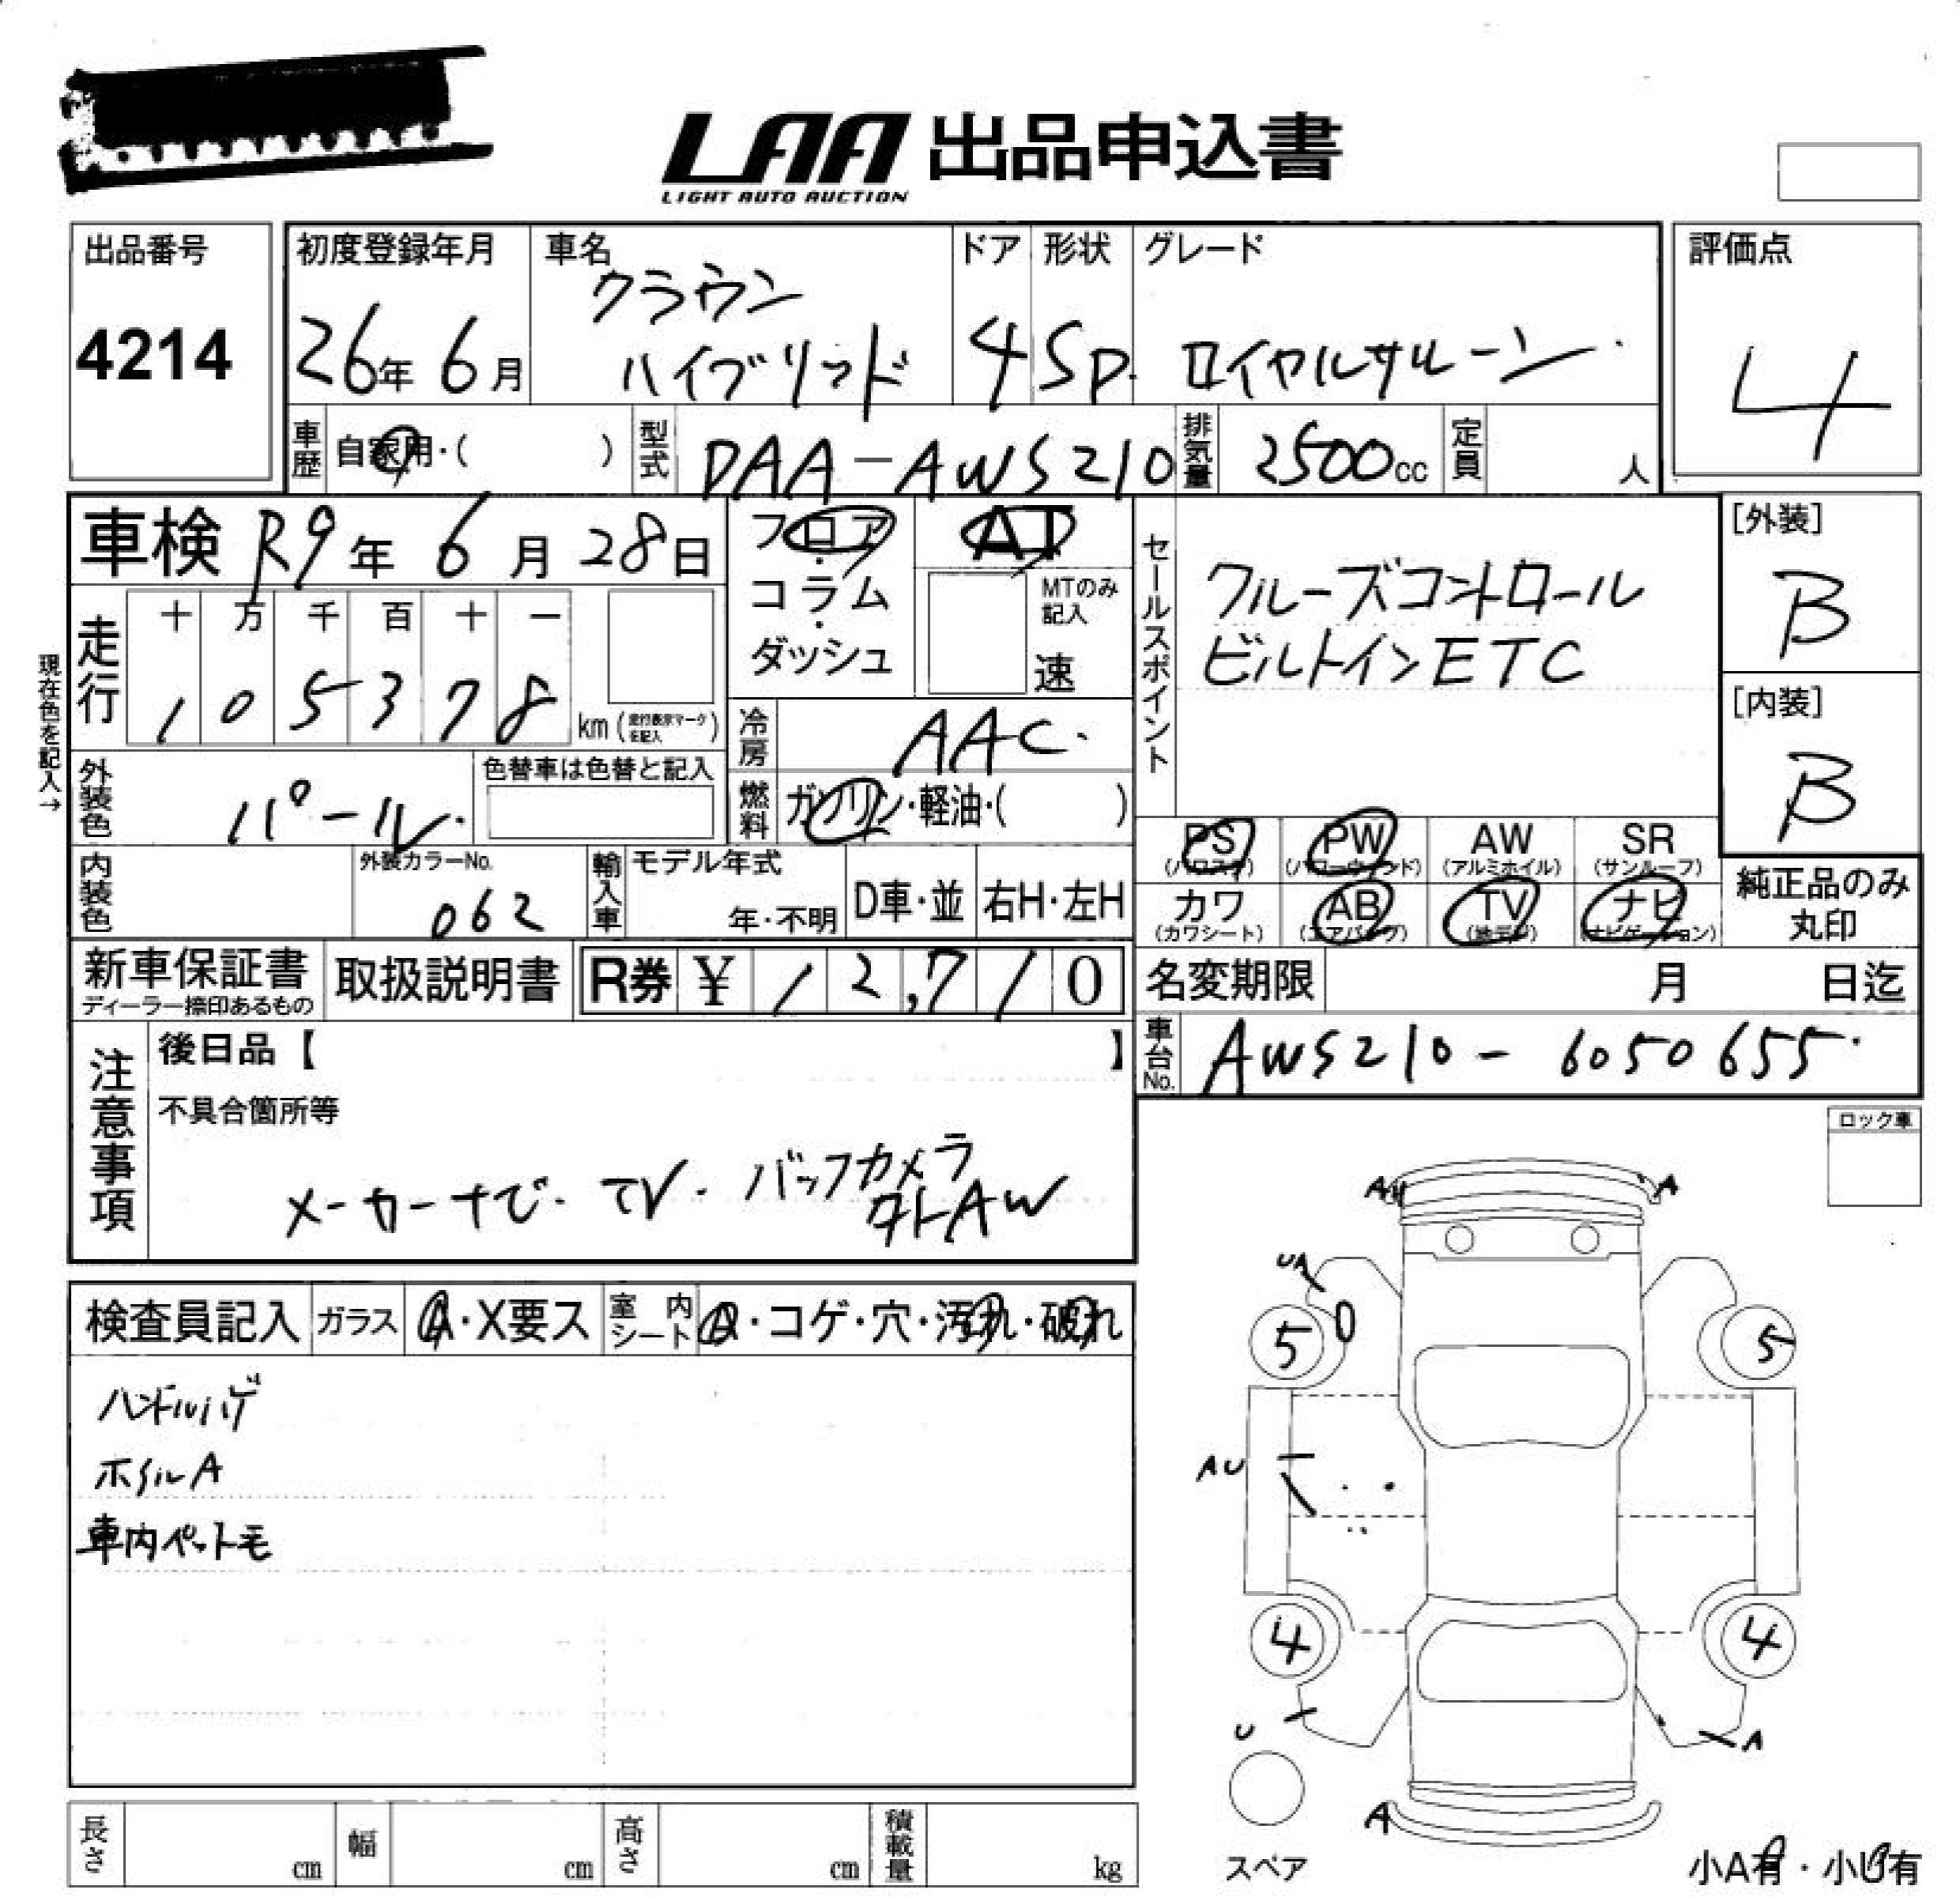 LAA 出品申込書
LIGHT AUTO AUCTION
出品番号
4214
初度登録年月
26年 6月
車名
クラウン
ハイブリッド
ドア
4
形状
SD
グレード
ロイヤルサルーン
評価点
4
車歴
自家用・( )
型式
DAA-AWS210
排気量
2500cc
定員
人
車検 R9年 6月 28日
フロア・
コラム・
ダッシュ
AT
MTのみ
記入
速
セールスポイント
クルーズコントロール
ビルトインETC
[外装]
B
[内装]
B
現在色を記入→
走行
十 万 千 百 十 一
1 0 5 3 7 8 km (走行表示マークを記入)
冷房
AAC
外装色
パール
色替車は色替と記入
燃料
ガソリン・軽油・( )
PS
(パワステ)
PW
(パワーウィンド)
AW
(アルミホイル)
SR
(サンルーフ)
内装色
外装カラーNo.
062
輸入車
モデル年式
年・不明
D車・並
右H・左H
カワ
(カワシート)
AB
(エアバッグ)
TV
(地デジ)
ナビ
(ナビゲーション)
純正品のみ
丸印
新車保証書
ディーラー捺印あるもの
取扱説明書
R券 ¥ 12,710
名変期限 月 日迄
車台No.
AWS210-6050655
注意事項
後日品【 】
不具合箇所等
メーカーナビ・TV・バックカメラ
外AW
ロック車
検査員記入
ガラス
A・X要ス
室内シート
・コゲ・穴・汚れ・破れ
ハンドルハゲ
ホイルA
車内ペットモ
A
A
UA
5
5
AU
4
4
U
A
A
スペア
長さ cm
幅 cm
高さ cm
積載量 kg
小A有・小U有